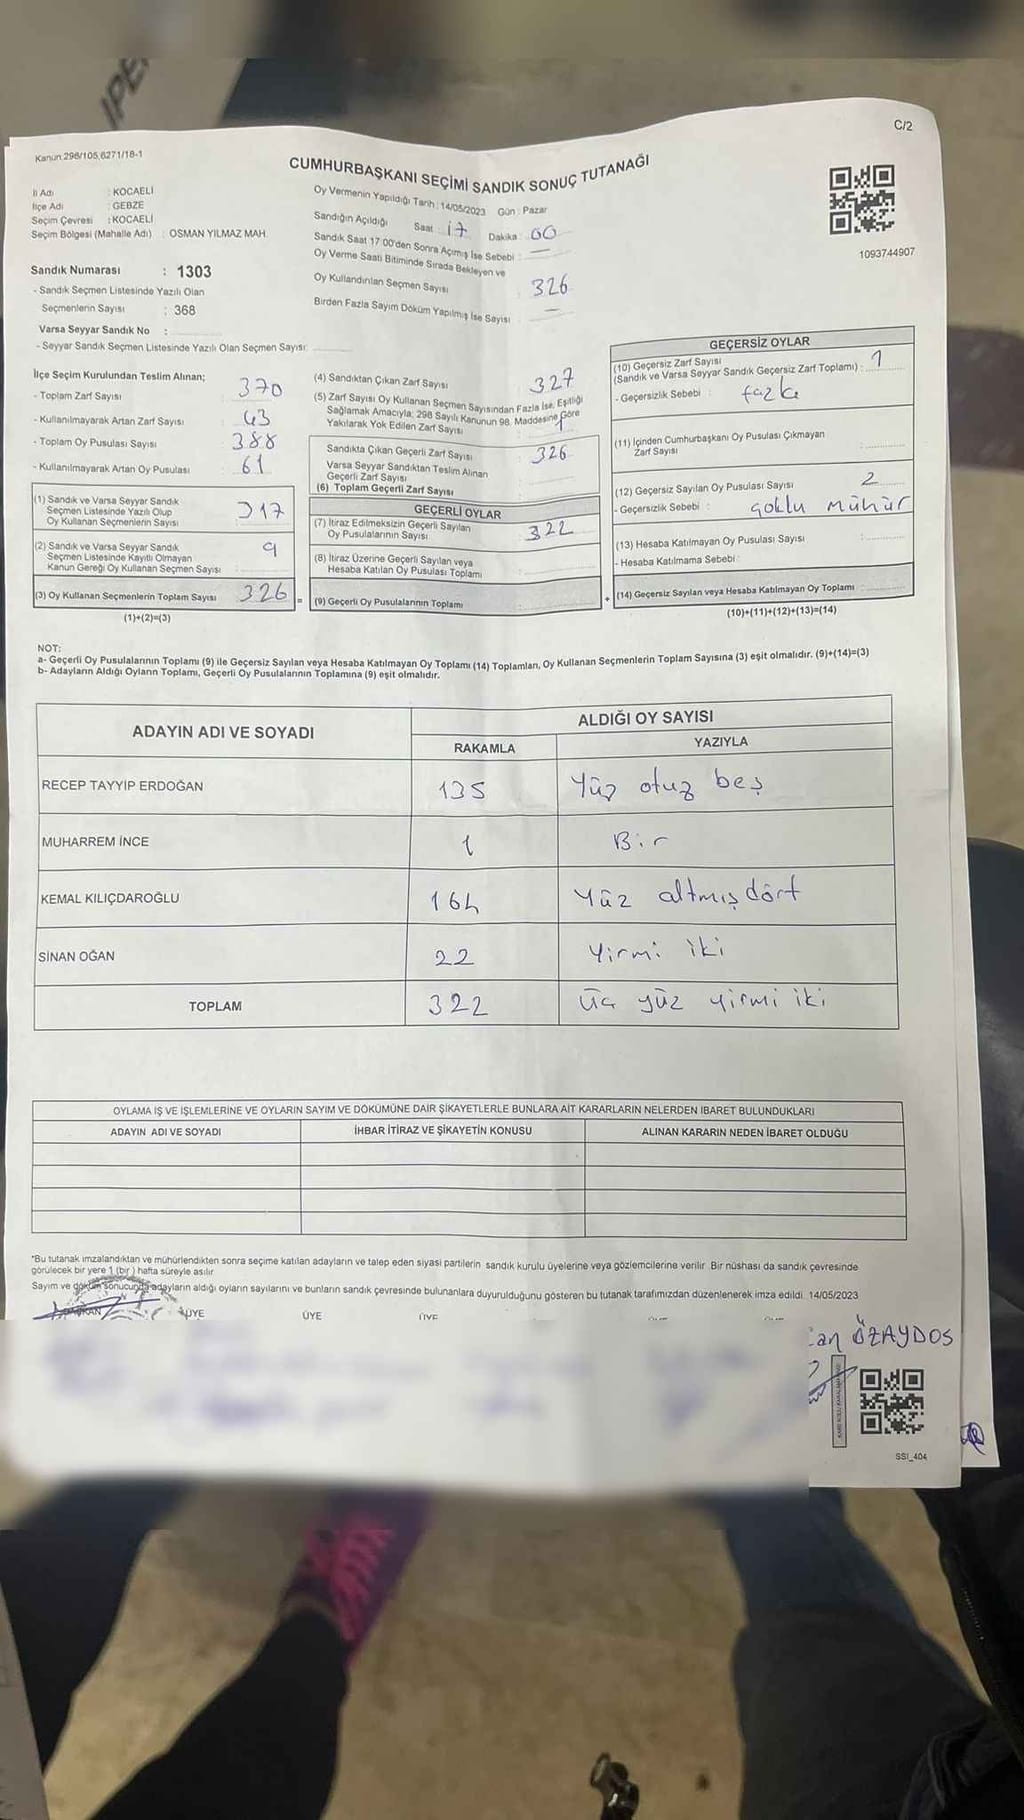 IPE
C/2
Kanun 298/105,6271/18-1
CUMHURBAŞKANI SEÇİMİ SANDIK SONUÇ TUTANAĞI
İl Adı : KOCAELİ
İlçe Adı : GEBZE
Seçim Çevresi : KOCAELİ
Seçim Bölgesi (Mahalle Adı) : OSMAN YILMAZ MAH.
Sandık Numarası : 1303
- Sandık Seçmen Listesinde Yazılı Olan
Seçmenlerin Sayısı : 368
Varsa Seyyar Sandık No :
- Seyyar Sandık Seçmen Listesinde Yazılı Olan Seçmen Sayısı:
Oy Vermenin Yapıldığı Tarih : 14/05/2023 Gün : Pazar
Sandığın Açıldığı Saat 17 Dakika : 00
Sandık Saat 17 00'den Sonra Açımış İse Sebebi : —
Oy Verme Saati Bitiminde Sırada Bekleyen ve
Oy Kullandırılan Seçmen Sayısı : 326
Birden Fazla Sayım Döküm Yapılmış İse Sayısı —
1093744907
İlçe Seçim Kurulundan Teslim Alınan;
- Toplam Zarf Sayısı : 370
- Kullanılmayarak Artan Zarf Sayısı : 43
- Toplam Oy Pusulası Sayısı : 388
- Kullanılmayarak Artan Oy Pusulası : 61
(1) Sandık ve Varsa Seyyar Sandık
Seçmen Listesinde Yazılı Olup
Oy Kullanan Seçmenlerin Sayısı : 317
(2) Sandık ve Varsa Seyyar Sandık
Seçmen Listesinde Kayıtlı Olmayan
Kanun Gereği Oy Kullanan Seçmen Sayısı : 9
(3) Oy Kullanan Seçmenlerin Toplam Sayısı 326
(1)+(2)=(3)
=
(4) Sandıktan Çıkan Zarf Sayısı 327
(5) Zarf Sayısı Oy Kullanan Seçmen Sayısından Fazla İse, Eşitliği
Sağlamak Amacıyla; 298 Sayılı Kanunun 98. Maddesine Göre
Yakılarak Yok Edilen Zarf Sayısı
Sandıkta Çıkan Geçerli Zarf Sayısı : 326
Varsa Seyyar Sandıktan Teslim Alınan
Geçerli Zarf Sayısı
(6) Toplam Geçerli Zarf Sayısı
GEÇERLİ OYLAR
(7) İtiraz Edilmeksizin Geçerli Sayılan
Oy Pusulalarının Sayısı : 322
(8) İtiraz Üzerine Geçerli Sayılan veya
Hesaba Katılan Oy Pusulası Toplamı
(9) Geçerli Oy Pusulalarının Toplamı
+
GEÇERSİZ OYLAR
(10) Geçersiz Zarf Sayısı
(Sandık ve Varsa Seyyar Sandık Geçersiz Zarf Toplamı) : 1
- Geçersizlik Sebebi : fazla
(11) İçinden Cumhurbaşkanı Oy Pusulası Çıkmayan
Zarf Sayısı
(12) Geçersiz Sayılan Oy Pusulası Sayısı : 2
- Geçersizlik Sebebi : çoklu mühür
(13) Hesaba Katılmayan Oy Pusulası Sayısı
- Hesaba Katılmama Sebebi :
(14) Geçersiz Sayılan veya Hesaba Katılmayan Oy Toplamı
(10)+(11)+(12)+(13)=(14)
NOT:
a- Geçerli Oy Pusulalarının Toplamı (9) ile Geçersiz Sayılan veya Hesaba Katılmayan Oy Toplamı (14) Toplamları, Oy Kullanan Seçmenlerin Toplam Sayısına (3) eşit olmalıdır. (9)+(14)=(3)
b- Adayların Aldığı Oyların Toplamı, Geçerli Oy Pusulalarının Toplamına (9) eşit olmalıdır.
ADAYIN ADI VE SOYADI
ALDIĞI OY SAYISI
RAKAMLA YAZIYLA
RECEP TAYYİP ERDOĞAN 135 Yüz otuz beş
MUHARREM İNCE 1 Bir
KEMAL KILIÇDAROĞLU 164 Yüz altmış dört
SİNAN OĞAN 22 Yirmi iki
TOPLAM 322 Üç yüz yirmi iki
OYLAMA İŞ VE İŞLEMLERİNE VE OYLARIN SAYIM VE DÖKÜMÜNE DAİR ŞİKAYETLERLE BUNLARA AİT KARARLARIN NELERDEN İBARET BULUNDUKLARI
ADAYIN ADI VE SOYADI İHBAR İTİRAZ VE ŞİKAYETİN KONUSU ALINAN KARARIN NEDEN İBARET OLDUĞU
*Bu tutanak imzalandıktan ve mühürlendikten sonra seçime katılan adayların ve talep eden siyasi partilerin sandık kurulu üyelerine veya gözlemcilerine verilir. Bir nüshası da sandık çevresinde
görülecek bir yere 1 (bir) hafta süreyle asılır.
Sayım ve döküm sonucunda adayların aldığı oyların sayılarını ve bunların sandık çevresinde bulunanlara duyurulduğunu gösteren bu tutanak tarafımızdan düzenlenerek imza edildi. 14/05/2023
BAŞKAN ÜYE ÜYE ÜYE
can ÖZAYDOS
SSI_404